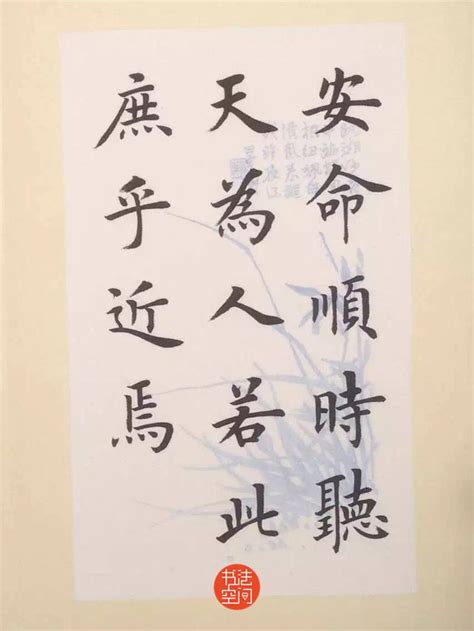 安命順時聽
天為人若此
庶乎近焉
书法
空间